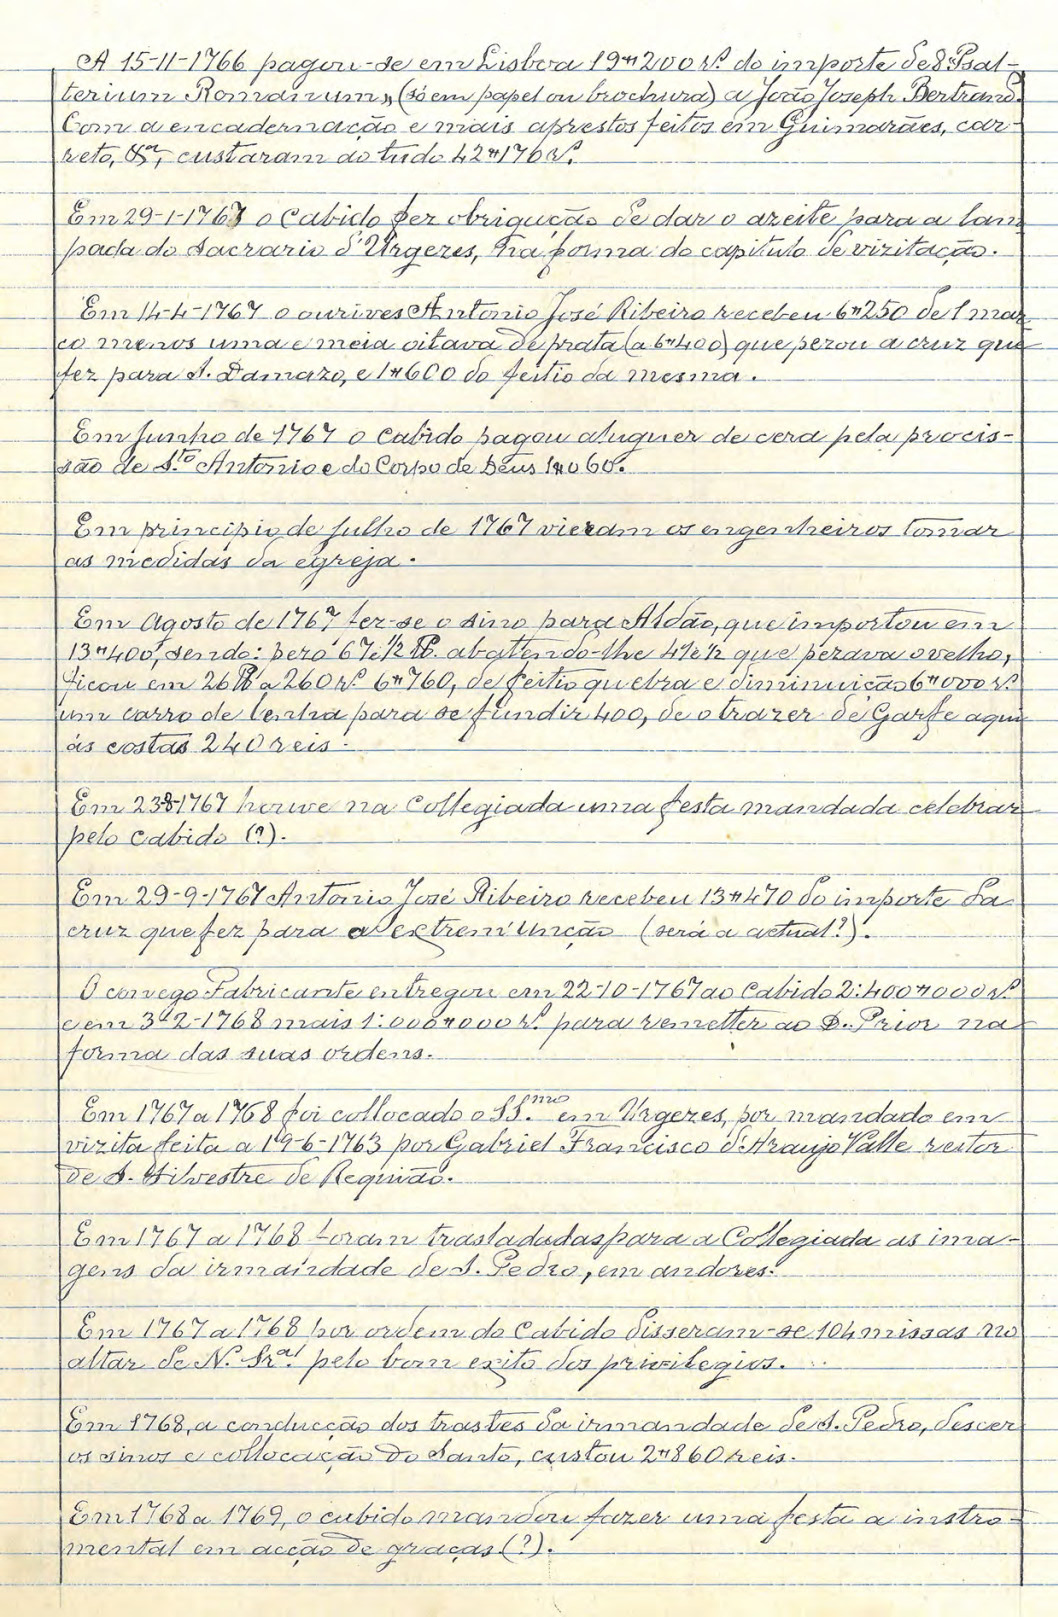 A 15-11-1766 pagou-se em Lisboa 19#200 rs. do importe de 8 Psal-
terium Romanum„ (só em papel ou brochura) a João Joseph Bertrand.
Com a encadernação e mais aprestos feitos em Guimarães, car-
reto, &ª, custaram ao tudo 42#176 rs.
Em 29-1-1767 o Cabido fez obrigação de dar o azeite para a lam
pada do sacrario d'Urgezes, na forma do capitulo de vizitação.
Em 14-4-1767 o ourives Antonio José Ribeiro recebeu 6#250 de 1 mar
co menos uma e meia oitava de prata (a 6#400) que pezou a cruz que
fez para S. Damazo, e 1#600 do feitio da mesma.
Em Junho de 1767 o Cabido pagou aluguer de cera pela procis-
são de S.to Antonio e do Corpo de Deus 1#060.
Em principio de Julho de 1767 vieram os engenheiros tomar
as medidas da egreja.
Em Agosto de 1767 fez-se o sino para Aldão, que importou em
13#400, sendo: pezo 67 e 1/2 lb. abatendo-lhe 41 e 1/2 que pezava o velho,
ficou em 26 lb a 260 rs. 6#760, de feitio quebra e diminuição 6#000 rs.
um carro de lenha para se fundir 400, de o trazer de Garfe aqui
ás costas 240 reis.
Em 23-8-1767 houve na Collegiada uma festa mandada celebrar
pelo Cabido (?).
Em 29-9-1767 Antonio José Ribeiro recebeu 13#470 do importe da
cruz que fez para a extrem'unção (será a actual?).
O conego Fabricante entregou em 22-10-1767 ao Cabido 2:400#000 rs.
e em 3-2-1768 mais 1:000#000 rs. para remetter ao D. Prior na
forma das suas ordens.
Em 1767 a 1768 foi collocado o SS.mo em Urgezes, por mandado em
vizita feita a 19-6-1763 por Gabriel Francisco d'Araujo Valle reitor
de S. Silvestre de Requião.
Em 1767 a 1768 foram trasladadas para a Collegiada as ima-
gens da irmandade de S. Pedro, em andores.
Em 1767 a 1768 por ordem do Cabido disseram-se 104 missas no
altar de N. Sra. pelo bom exito dos privilegios.
Em 1768, a conducção dos trastes da irmandade de S. Pedro, descer
os sinos e collocação do Santo, custou 2#860 reis.
Em 1768 a 1769, o cabido mandou fazer uma festa a instro-
mental em acção de graças (?).